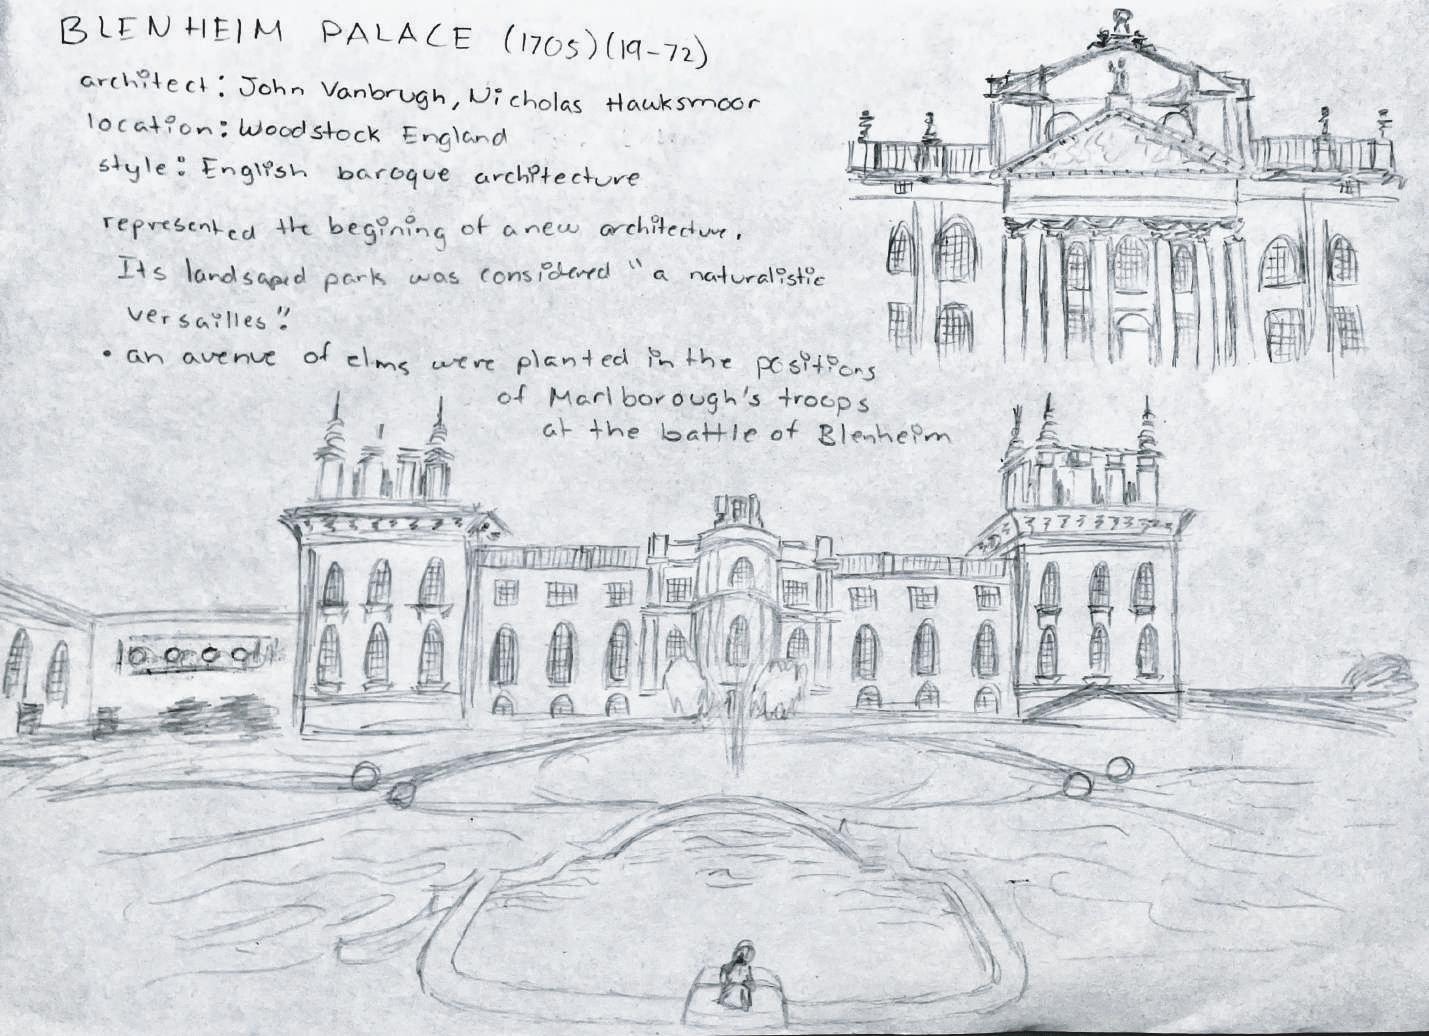 BLENHEIM PALACE (1705) (19-72)
architect: John Vanbrugh, Nicholas Hawksmoor
location: Woodstock England
style: English baroque architecture
represented the begining of a new architecture.
Its landsaped park was considered "a naturalistic
versailles".
• an avenue of elms were planted in the positions
of Marlborough's troops
at the battle of Blenheim